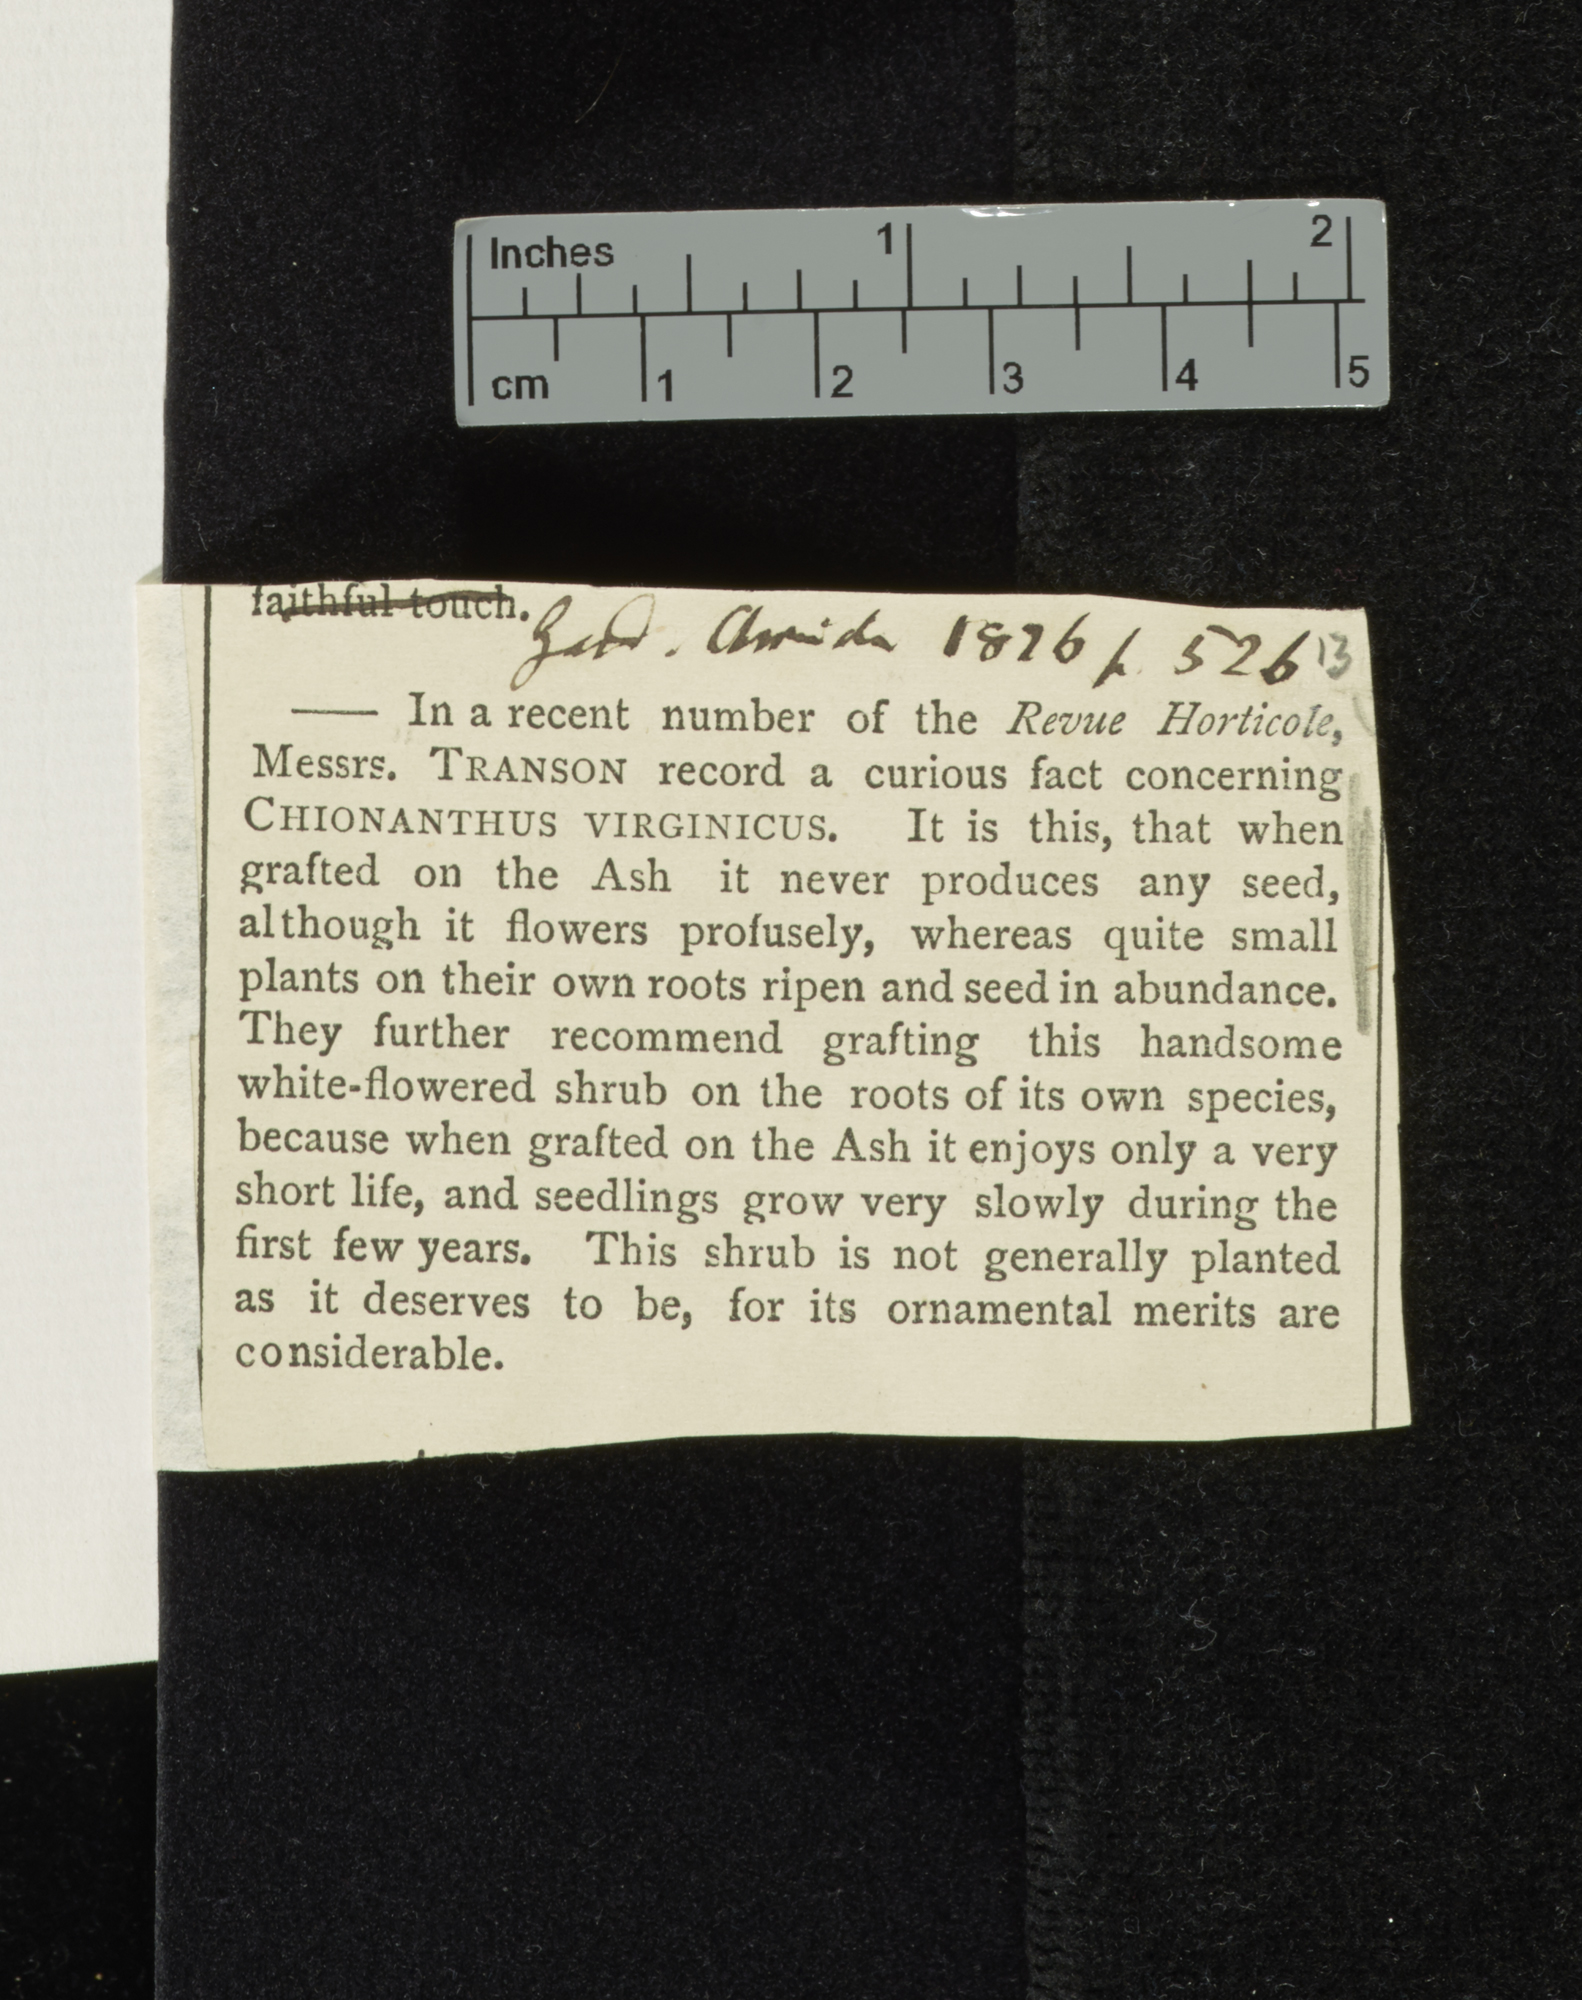 Inches 1 2
cm 1 2 3 4 5
faithful touch.
Gard. Chronicle 1876 p. 526 13
—— In a recent number of the Revue Horticole,
Messrs. TRANSON record a curious fact concerning
CHIONANTHUS VIRGINICUS. It is this, that when
grafted on the Ash it never produces any seed,
although it flowers profusely, whereas quite small
plants on their own roots ripen and seed in abundance.
They further recommend grafting this handsome
white-flowered shrub on the roots of its own species,
because when grafted on the Ash it enjoys only a very
short life, and seedlings grow very slowly during the
first few years. This shrub is not generally planted
as it deserves to be, for its ornamental merits are
considerable.